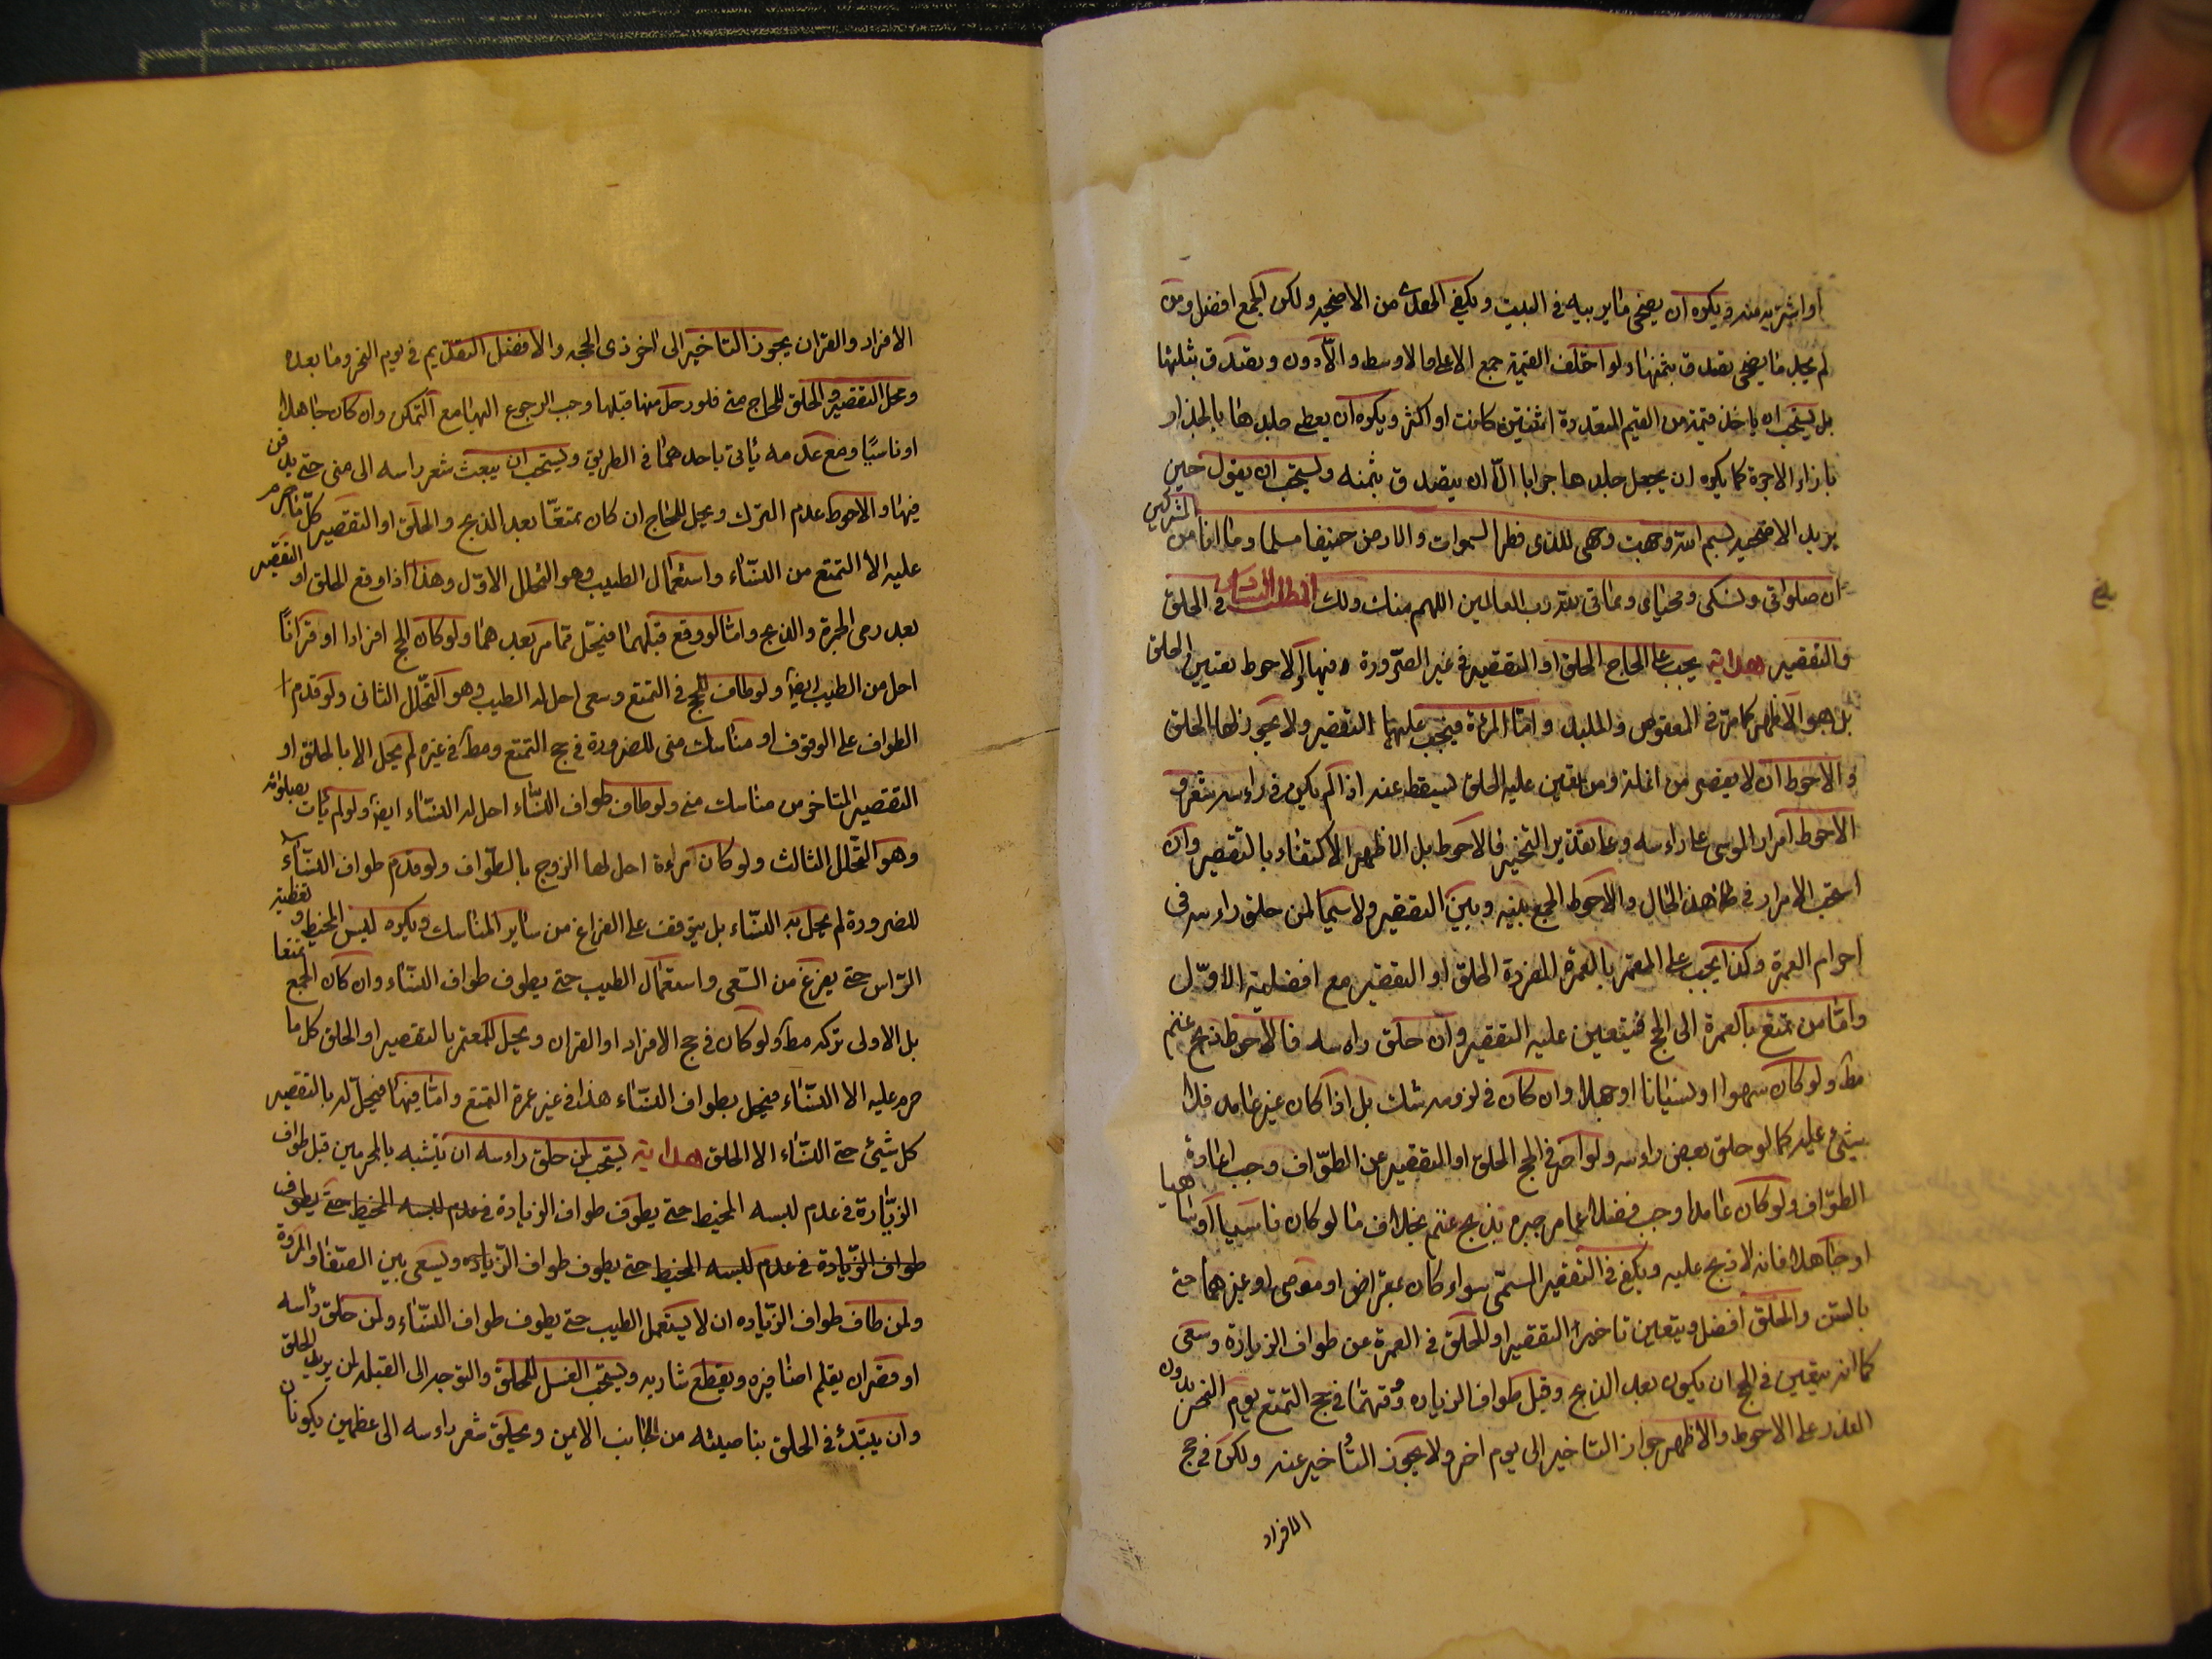 او اشتريه منه ويكوه ان يضحى ما يربيه فى البيت ويكفى الهدى من الاضحيه ولكن الجمع افضل ومن
لم يجد ما يضحى تصدق بثمنها ولو اختلف القيمة جمع الاعلى والاوسط والادون وتصدق بثلثها
بل يستحب ان ياخذ قيمة من القيم المتعددة اثنتين كانت او اكثر ويكوه ان يعطى جلدها بالجزار
بازاء الاجرة كما يكوه ان يجعل جلدها جرابا الا ان يتصدق بثمنه ويستحب ان يقول حين
يريد الاضحيه بسم الله وجهت وجهى للذى فطر السموات والارض حنيفا مسلما وما انا من المشركين
ان صلوتى ونسكى ومحياى ومماتى لله رب العالمين اللهم منك ولك المطلب فى الحلق
والتقصير هداية يجب على الحاج الحلق او التقصير فى غير الصرورة وفيها الاحوط تعيين الحلق
بل هو الاظهر كما مر فى المعقوص والملبد واما المرئة فيجب عليها التقصير ولا يجوز لها الحلق
والاحوط ان لا يقصر من انملة ومن تعين عليه الحلق يسقط عنه اذا لم يكن فى راسه شعر و
الاحوط امرار الموسى على راسه وعلى تقدير التخيير فالاحوط بل الاظهر الاكتفاء بالتقصير وان
استحب الامرار فى هذا الحال والاحوط الجمع بينه وبين التقصير ولا سيما لمن حلق راسه فى
احرام العمرة وكذا يجب على المعتمر بالعمرة المفردة الحلق او التقصير مع افضلية الاول
واما من تمتع بالعمرة الى الحج فيتعين عليه التقصير وان حلق راسه فالاحوط ذبح غنم
مط ولو كان سهوا او نسيانا او جهلا وان كان فى لزومه شك بل اذا كان غير عامد فلا
شئ عليه كما لو حلق بعض راسه ولو اخر فى الحج الحلق او التقصير عن الطواف وجب اعادة
الطواف ولو كان عامدا وجب فضلا عما مر جبره بذبح غنم بخلاف ما لو كان ناسيا او ساهيا
او جاهلا فانه لا ذبح عليه ويكفى فى التقصير المسمى سواء كان بمقراض او موسى او غيرهما حتى
بالسن والحلق افضل ويتعين تاخير التقصير او الحلق فى العمرة عن طواف الزيارة وسعى
كما انه يتعين فى الحج ان يكون بعد الذبح وقبل طواف الزيارة وقتهما فى حج التمتع يوم النحر بدون
العذر على الاحوط والاظهر جواز التاخير الى يوم اخر ولا يجوز التاخير عنه ولكن فى حج
الافراد
الافراد والقران يجوز التاخير الى اخر ذى الحجه والافضل التقديم فى يوم النحر وما بعده
ومحل التقصير والحلق للحاج منى فلو رحل منها قبلها وجب الرجوع اليها مع التمكن وان كان جاهلا
او ناسيا ومع عدمه ياتى باحدهما فى الطريق ويستحب ان يبعث شعر راسه الى منى حتى يدفن
فيها والاحوط عدم الترك ويحل للحاج ان كان متمتعا بعد الذبح والحلق او التقصير كل ما حرم
عليه الا التمتع من النساء واستعمال الطيب وهو التحلل الاول وهذا اذا وقع الحلق او التقصير
بعد رمى الجمرة والذبح واما لو وقع قبلهما فيحل مما مر بعدهما ولو كان الحج افرادا او قرانا
احل من الطيب ايضا ولو طاف للحج فى التمتع وسعى احل له الطيب وهو التحلل الثانى ولو قدم
الطواف على الوقوف او مناسك منى للضرورة فى حج التمتع ومط فى غيره لم يحل الا بالحلق او
التقصير المتاخر من مناسك منى ولو طاف طواف النساء احل له النساء ايضا ولو لم يات بصلوته
وهو التحلل الثالث ولو كان امراءة احل لها الزوج بالطواف ولو قدم طواف النساء
للضرورة لم يحل به النساء بل يتوقف على الفراغ من ساير المناسك ويكوه لبس المخيط وتغطية
الراس حتى يفرغ من السعى واستعمال الطيب حتى يطوف طواف النساء وان كان الحج تمتعا
بل الاولى تركه مط ولو كان فى حج الافراد او القران ويحل للمعتمر بالتقصير او الحلق كل ما
حرم عليه الا النساء فيحل بطواف النساء هذا فى غير عمرة التمتع واما فيها فيحل له بالتقصير
كل شئ حتى النساء الا الحلق هداية يستحب لمن حلق راسه ان يتشبه بالمحرمين قبل طواف
الزيارة فى عدم لبسه المخيط حتى يطوف طواف الزيارة فى عدم لبسه المخيط حتى يطوف
طواف الزيارة فى عدم لبسه المخيط حتى يطوف طواف الزيارة ويسعى بين الصفا والمروة
ولمن طاف طواف الزيارة ان لا يستعمل الطيب حتى يطوف طواف النساء ولمن حلق راسه
او قصر ان يقلم اظافيره ويقطع شاربه ويستحب الغسل للحلق والتوجه الى القبله لمن يريد الحلق
وان يبتدئ فى الحلق بناصيته من الجانب الايمن ويحلق شعر راسه الى عظمين يكونان